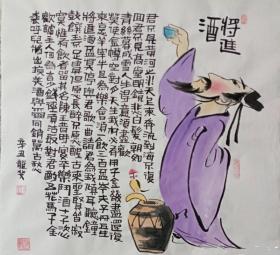 將進
酒
君不見黄河之水天上來奔流到海不復
回君不見高堂明鏡悲白髮朝如
青絲暮成雪人生得意須盡歡
莫使金樽空對月天生我材必有用千金散盡還復
來烹羊宰牛且爲樂會須一飲三百杯岑夫子丹丘生
將進酒杯莫停與君歌一曲請君爲我傾耳聽鐘鼓
饌玉不足貴但願長醉不願醒古來聖賢皆寂
寞惟有飲者留其名陳王昔時宴平樂斗酒十千恣
歡謔主人何爲言少錢徑須沽取對君酌五花馬千金
裘呼兒將出換美酒與爾同銷萬古愁
辛丑龍